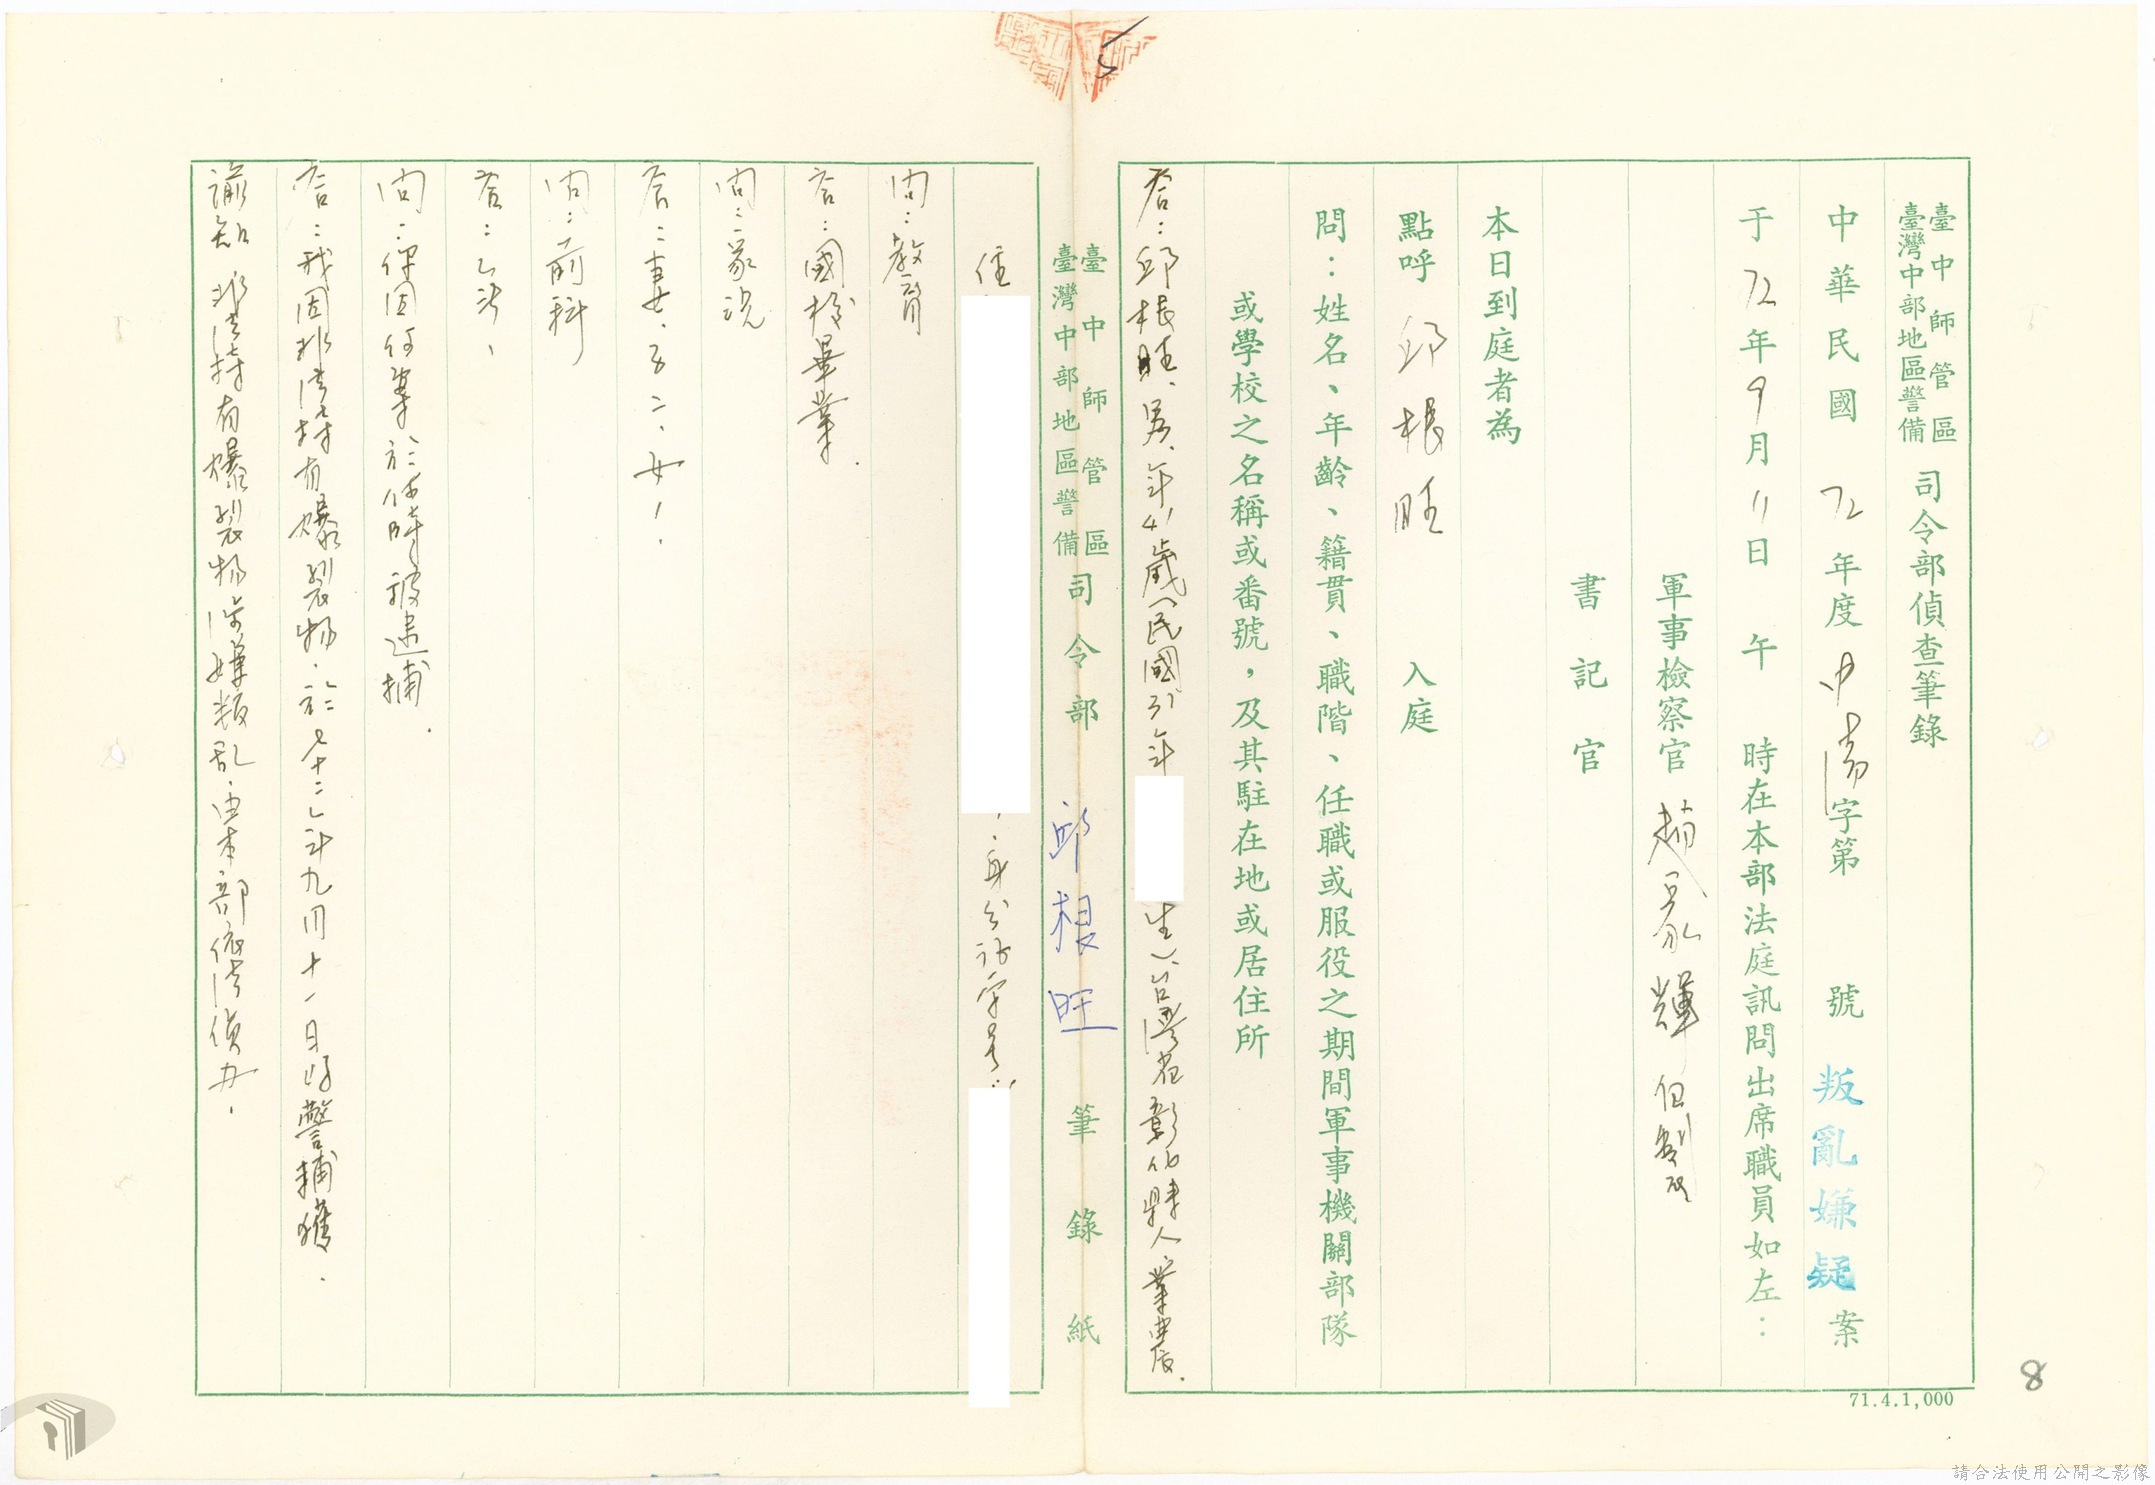 臺中師管區
臺灣中部地區警備
司令部偵查筆錄
中華民國72年度中清字第 號叛亂嫌疑案
于72年9月11日 午 時在本部法庭訊問出席職員如左：
軍事檢察官
書記官
本日到庭者為
點呼 邱根旺 入庭
問：姓名、年齡、籍貫、職階、任職或服役之期間軍事機關部隊
或學校之名稱或番號，及其駐在地或居住所
答：邱根旺、男、年41歲（民國31年 生）、台灣省彰化縣人、業農、
臺中師管區
臺灣中部地區警備
司令部 邱根旺 筆錄紙
住 、身分証字号：
問：教育
答：國校畢業．
問：家況
答：妻、子二、女1．
問：前科
答：沒有、
問：你因何案於何時被逮捕．
答：我因非法持有爆裂物．於七十二年九月十一日 警捕獲．
諭知 非法持有爆裂物涉嫌叛乱．由本部依法偵办．
71.4.1,000
8
請合法使用公開之影像